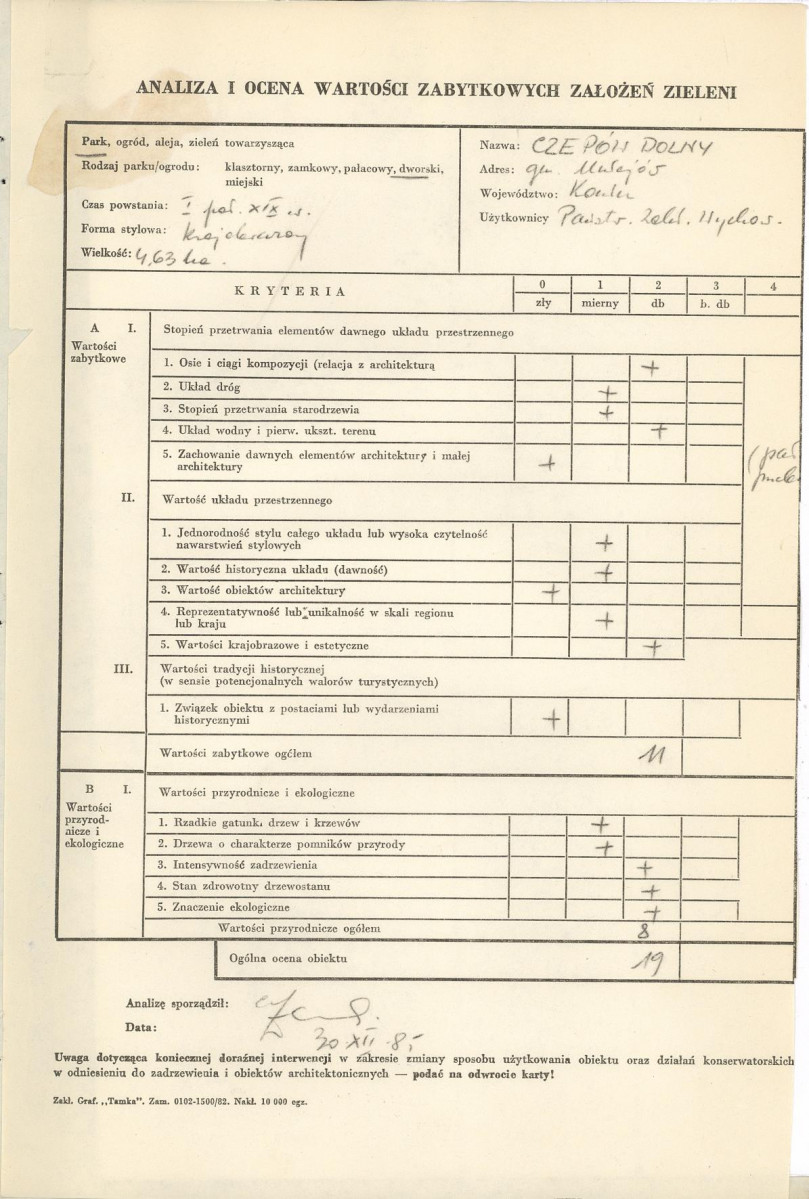 ANALIZA I OCENA WARTOŚCI ZABYTKOWYCH ZAŁOŻEŃ ZIELENI
Park, ogród, aleja, zieleń towarzysząca
Rodzaj parku/ogrodu: klasztorny, zamkowy, pałacowy, dworski,
miejski
Czas powstania: I poł. XIX w.
Forma stylowa: krajobrazowy
Wielkość: 4,63 ha.
Nazwa: CZEPÓW DOLNY
Adres: gm.
Województwo: Konin
Użytkownicy Państw. Zakł.
KRYTERIA
0 1 2 3 4
zły mierny db b. db
A I. Stopień przetrwania elementów dawnego układu przestrzennego
Wartości
zabytkowe
1. Osie i ciągi kompozycji (relacja z architekturą +
2. Układ dróg +
3. Stopień przetrwania starodrzewia +
4. Układ wodny i pierw. ukszt. terenu +
5. Zachowanie dawnych elementów architektury i małej
architektury +
II. Wartość układu przestrzennego
1. Jednorodność stylu całego układu lub wysoka czytelność
nawarstwień stylowych +
2. Wartość historyczna układu (dawność) +
3. Wartość obiektów architektury +
4. Reprezentatywność lub unikalność w skali regionu
lub kraju +
5. Wartości krajobrazowe i estetyczne +
III. Wartości tradycji historycznej
(w sensie potencjonalnych walorów turystycznych)
1. Związek obiektu z postaciami lub wydarzeniami
historycznymi +
Wartości zabytkowe ogółem 11
B I. Wartości przyrodnicze i ekologiczne
Wartości
przyrod-
nicze i
ekologiczne
1. Rzadkie gatunki drzew i krzewów +
2. Drzewa o charakterze pomników przyrody +
3. Intensywność zadrzewienia +
4. Stan zdrowotny drzewostanu +
5. Znaczenie ekologiczne +
Wartości przyrodnicze ogółem 8
Ogólna ocena obiektu 19
Analizę sporządził:
Data: 30 XII 85
Uwaga dotycząca koniecznej doraźnej interwencji w zakresie zmiany sposobu użytkowania obiektu oraz działań konserwatorskich
w odniesieniu do zadrzewienia i obiektów architektonicznych — podać na odwrocie karty!
Zakł. Graf. „Tamka". Zam. 0102-1500/82. Nakł. 10 000 egz.